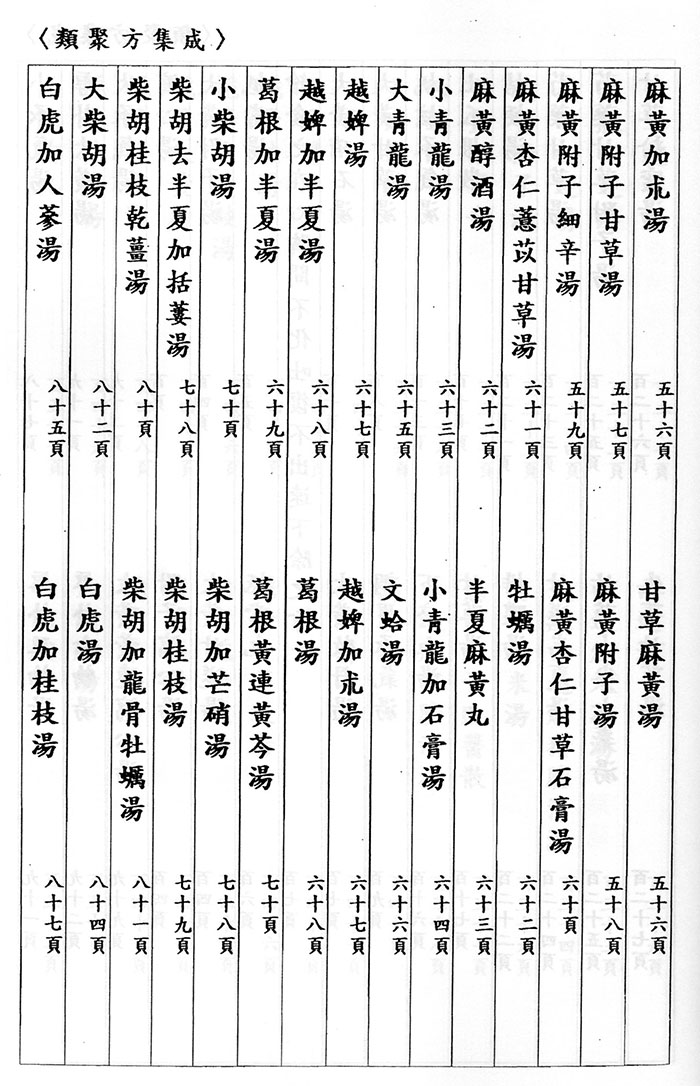 〈類聚方集成〉
麻黃加朮湯 五十六頁 甘草麻黃湯 五十六頁
麻黃附子甘草湯 五十七頁 麻黃附子湯 五十八頁
麻黃附子細辛湯 五十九頁 麻黃杏仁甘草石膏湯 六十頁
麻黃杏仁薏苡甘草湯 六十一頁 牡蠣湯 六十二頁
麻黃醇酒湯 六十二頁 半夏麻黃丸 六十三頁
小青龍湯 六十三頁 小青龍加石膏湯 六十四頁
大青龍湯 六十五頁 文蛤湯 六十六頁
越婢湯 六十七頁 越婢加朮湯 六十七頁
越婢加半夏湯 六十八頁 葛根湯 六十八頁
葛根加半夏湯 六十九頁 葛根黃連黃芩湯 七十頁
小柴胡湯 七十頁 柴胡加芒硝湯 七十八頁
柴胡去半夏加括蔞湯 七十八頁 柴胡桂枝湯 七十九頁
柴胡桂枝乾薑湯 八十頁 柴胡加龍骨牡蠣湯 八十一頁
大柴胡湯 八十二頁 白虎湯 八十四頁
白虎加人蔘湯 八十五頁 白虎加桂枝湯 八十七頁